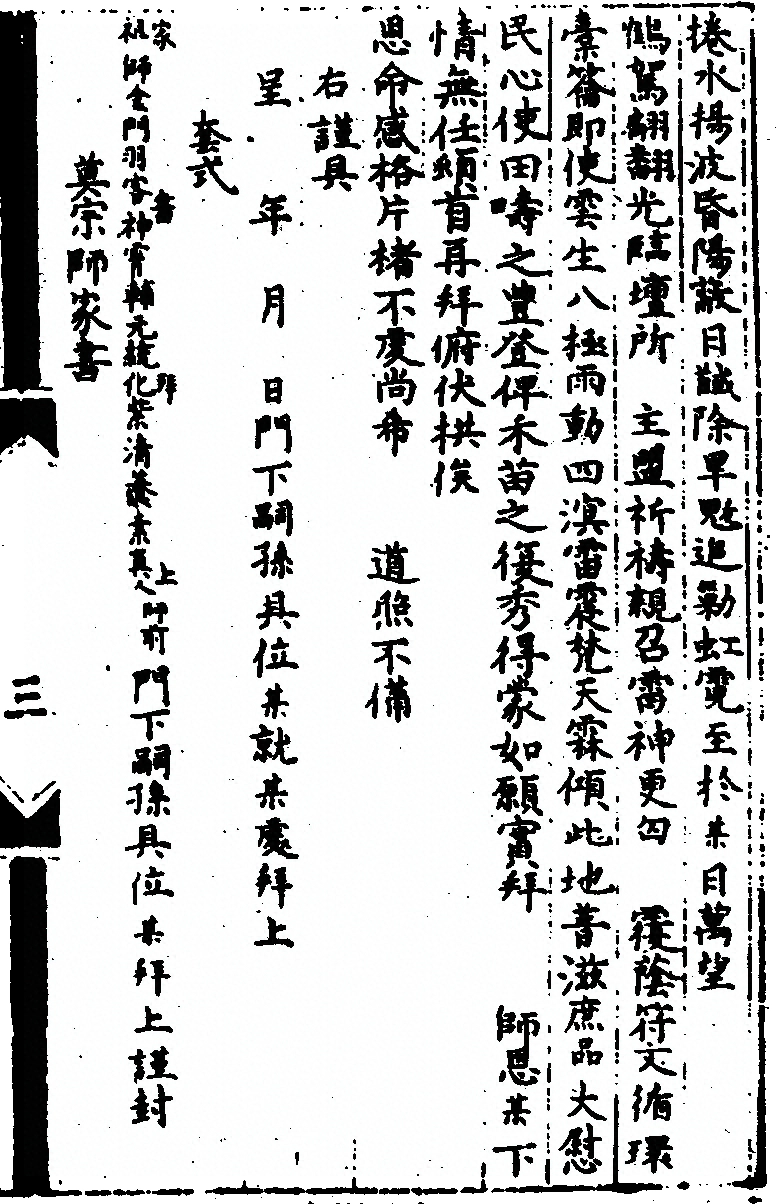 捲水揚波昏陽譤日馘除旱魃追勦虹霓至於某日萬望
鶴駕翩翻光臨壇所 主盟祈禱親召雷神更匃 覆蔭符文循環
橐籥即使雲生八極雨動四溟雷霆梵天霖傾此地普滋庶品大慰
民心使田疇之豐登俾禾苗之復秀得蒙如願實拜 師恩某下
情無任頫首再拜俯伏拱俟
恩命感格片楮不虔尚希 道照不備
右謹具
呈 年 月 日門下嗣孫具位某就某處拜上
套式
家 書 拜 上
祖師金門羽客神霄輔元統化紫清養素真人師前 門下嗣孫具位某拜上謹封
奠宗師家書
三